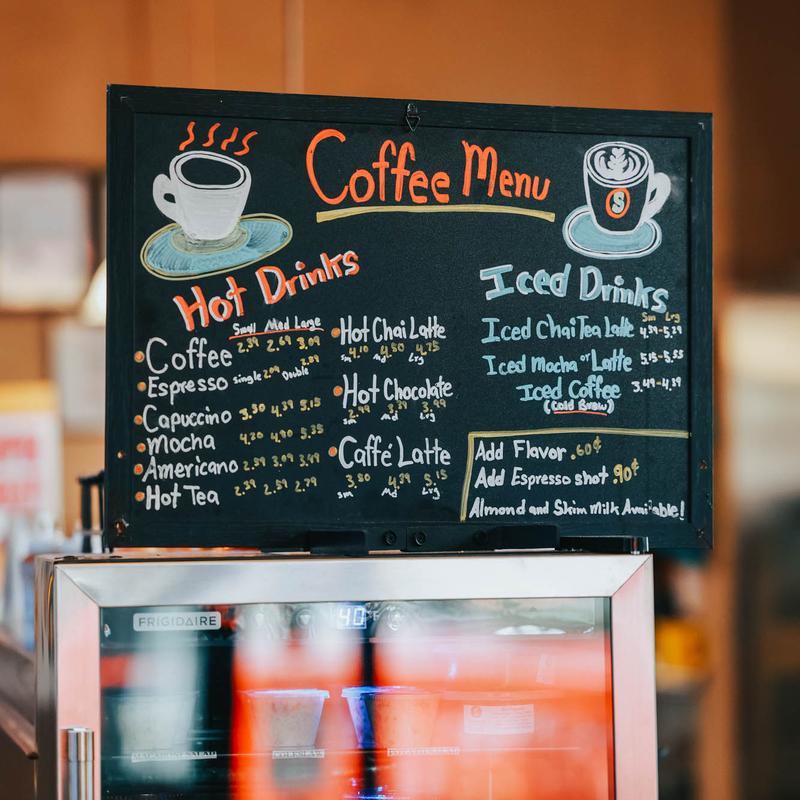 Coffee Menu
S
Hot Drinks
Small Med Large
Coffee 2.39 2.69 3.09
Espresso single 2.09 Double 2.89
Capuccino 3.80 4.39 5.15
Mocha 4.20 4.90 5.35
Americano 2.59 3.09 3.49
Hot Tea 2.39 2.59 2.79
Hot Chai Latte
sm 4.10 Md 4.50 Lrg 4.75
Hot Chocolate
2.99 3.39 3.99
sm Md Lrg
Caffé Latte
3.80 4.39 5.15
sm Md Lrg
Iced Drinks
Sm Lrg
Iced Chai Tea Latte 4.39-5.29
Iced Mocha or Latte 5.15-5.55
Iced Coffee 3.49-4.39
(Cold Brew)
Add Flavor .60¢
Add Espresso shot .90¢
Almond and Skim Milk Available!
FRIGIDAIRE
40°F
MACARONI SALAD
COLESLAW